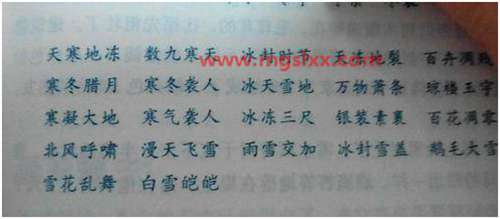 天寒地冻 数九寒天 冰封时节 天冻地裂 百卉凋残
www.mgslxx.com
寒冬腊月 寒冬袭人 冰天雪地 万物萧条 琼楼玉宇
寒凝大地 寒气袭人 冰冻三尺 银装素裹 百花凋零
北风呼啸 漫天飞雪 雨雪交加 冰封雪盖 鹅毛大雪
雪花乱舞 白雪皑皑